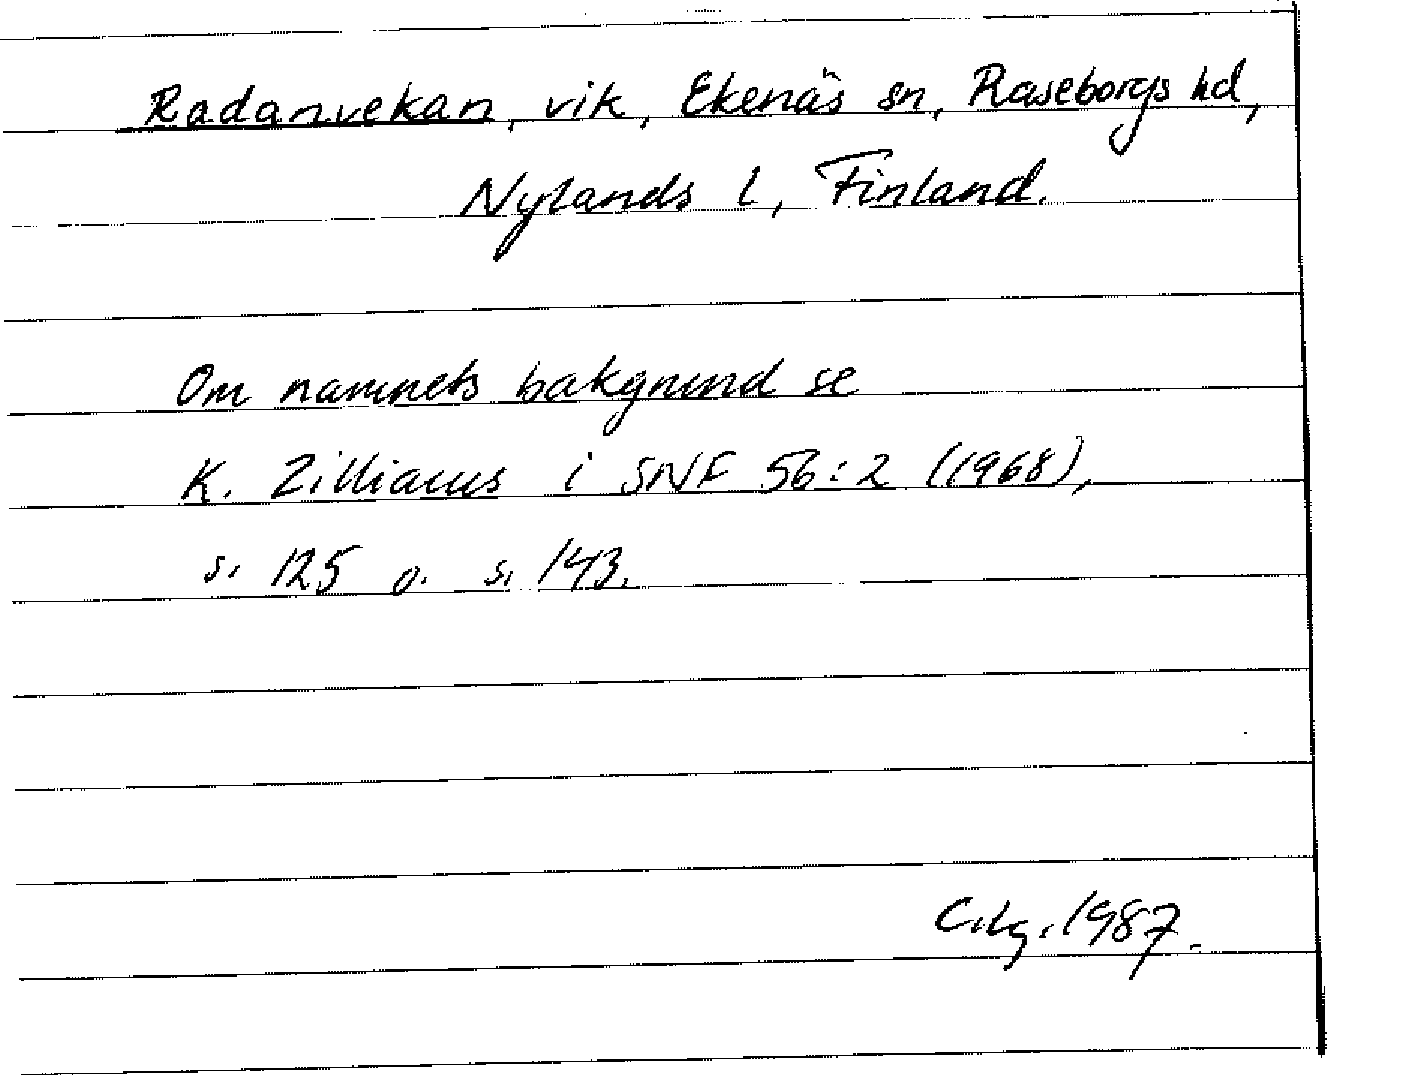 Radanvekan, vik, Ekenäs sn, Raseborgs hd,
Nylands l, Finland.
Om namnets bakgrund se
K. Zilliacus i SNF 56:2 (1968),
s. 125 o. s. 143.
1987.